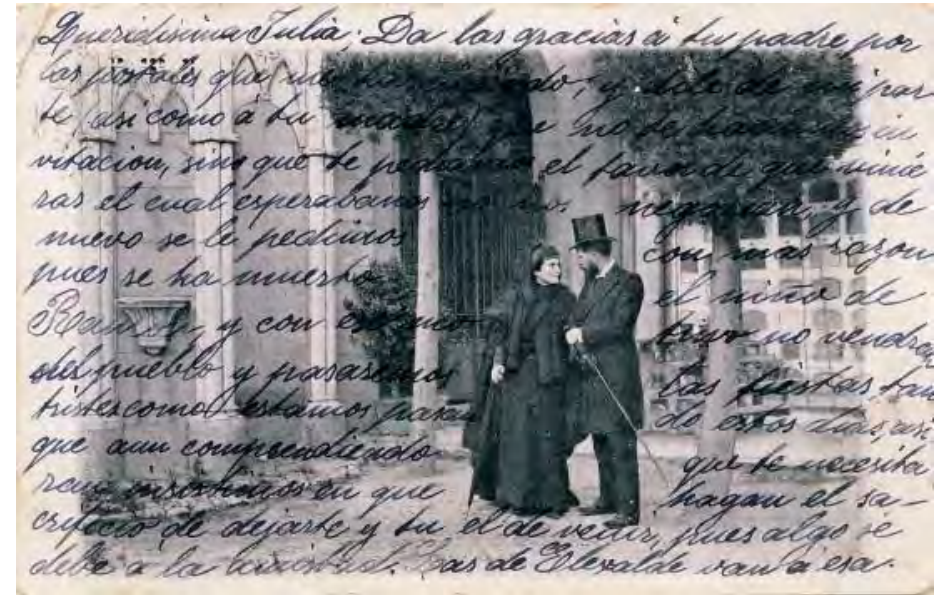 Queridisima Julia: Da las gracias á tu padre por
las postales que me ha, y dile de mi par
te, asi como á tu madre, que no se in
vitacion, sino que te pediamos el favor de que vinie
ras el cual esperabamos no nos negarian, y de
nuevo se le pedimos con mas razon
pues se ha muerto el niño de
Ramon, y con ese mo tivo no vendran
del pueblo y pasaremos las fiestas tan
tristes como estamos pasan do estos dias, asi
que aun comprendiendo que te necesita
ran insistimos en que hagan el sa-
crificio de dejarte y tu el de venir, pues algo se
debe á la amistad. Las de Elexalde van á esa.